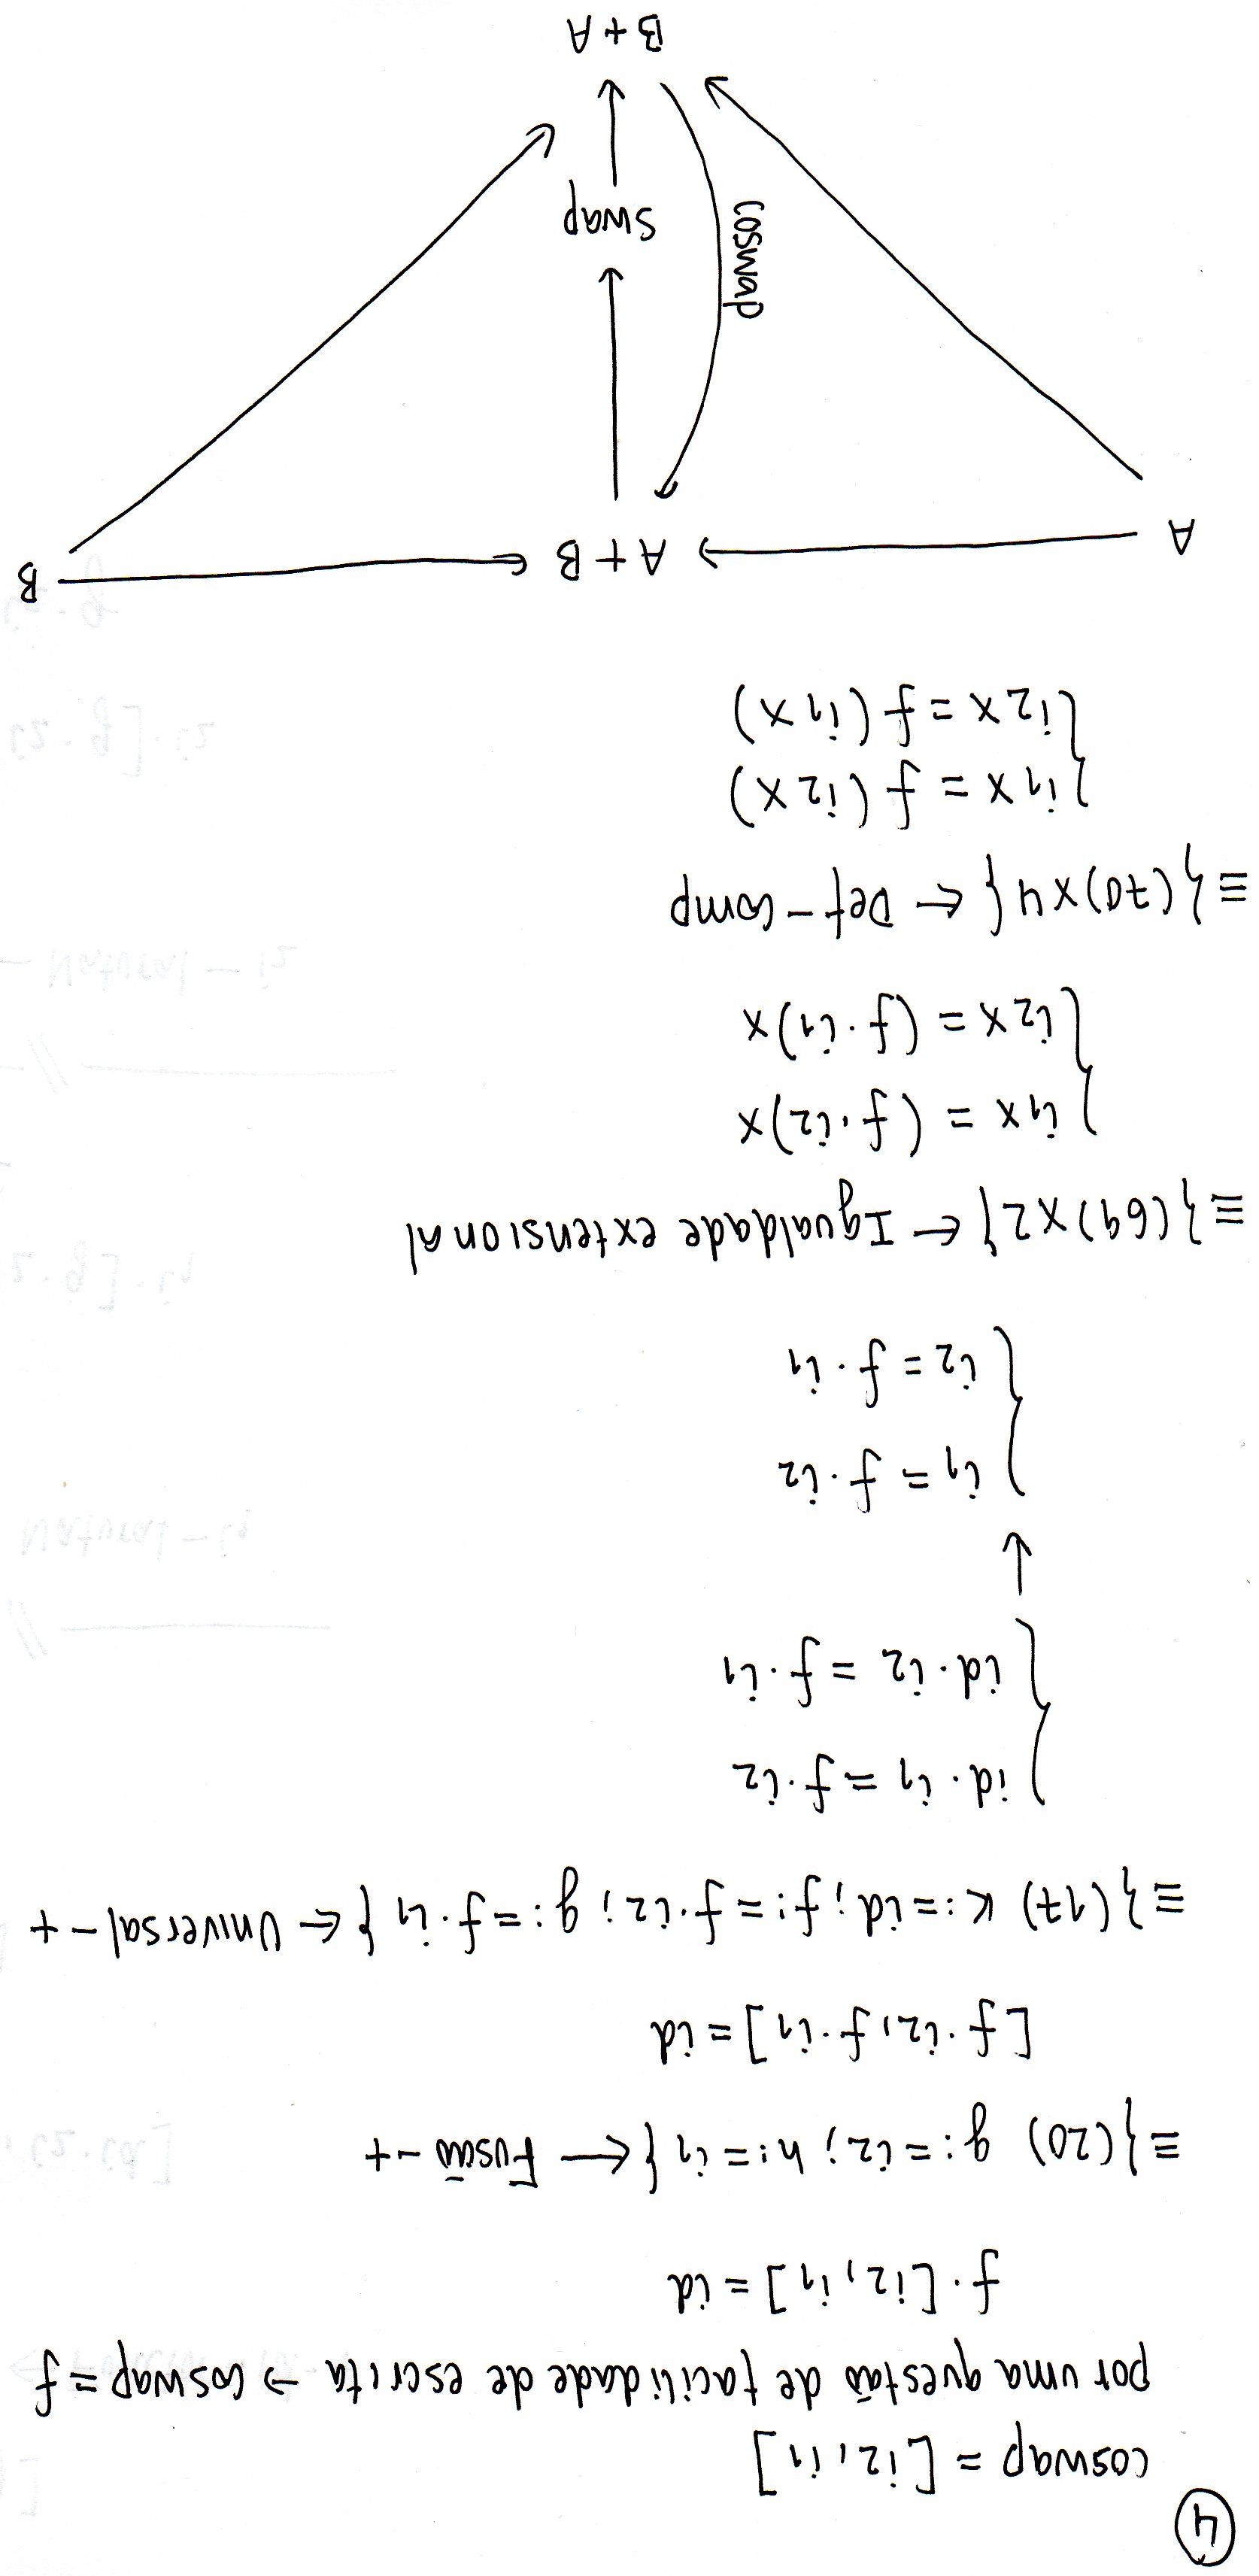 4
coswap = [i2, i1]
por uma questão de facilidade de escrita → coswap = f
f · [i2, i1] = id
≡ { (20) g := i2; h := i1 } ← Fusão - +
[f · i2, f · i1] = id
≡ { (17) K := id; f := f · i2; g := f · i1 } ← Universal - +
{ id · i1 = f · i2
id · i2 = f · i1
↓
{ i1 = f · i2
i2 = f · i1
≡ { (69) x2 } ← Igualdade extensional
{ i1 x = (f · i2) x
i2 x = (f · i1) x
≡ { (70) x4 } ← Def - comp
{ i1 x = f (i2 x)
i2 x = f (i1 x)
A → A + B ← B
coswap
swap
B + A